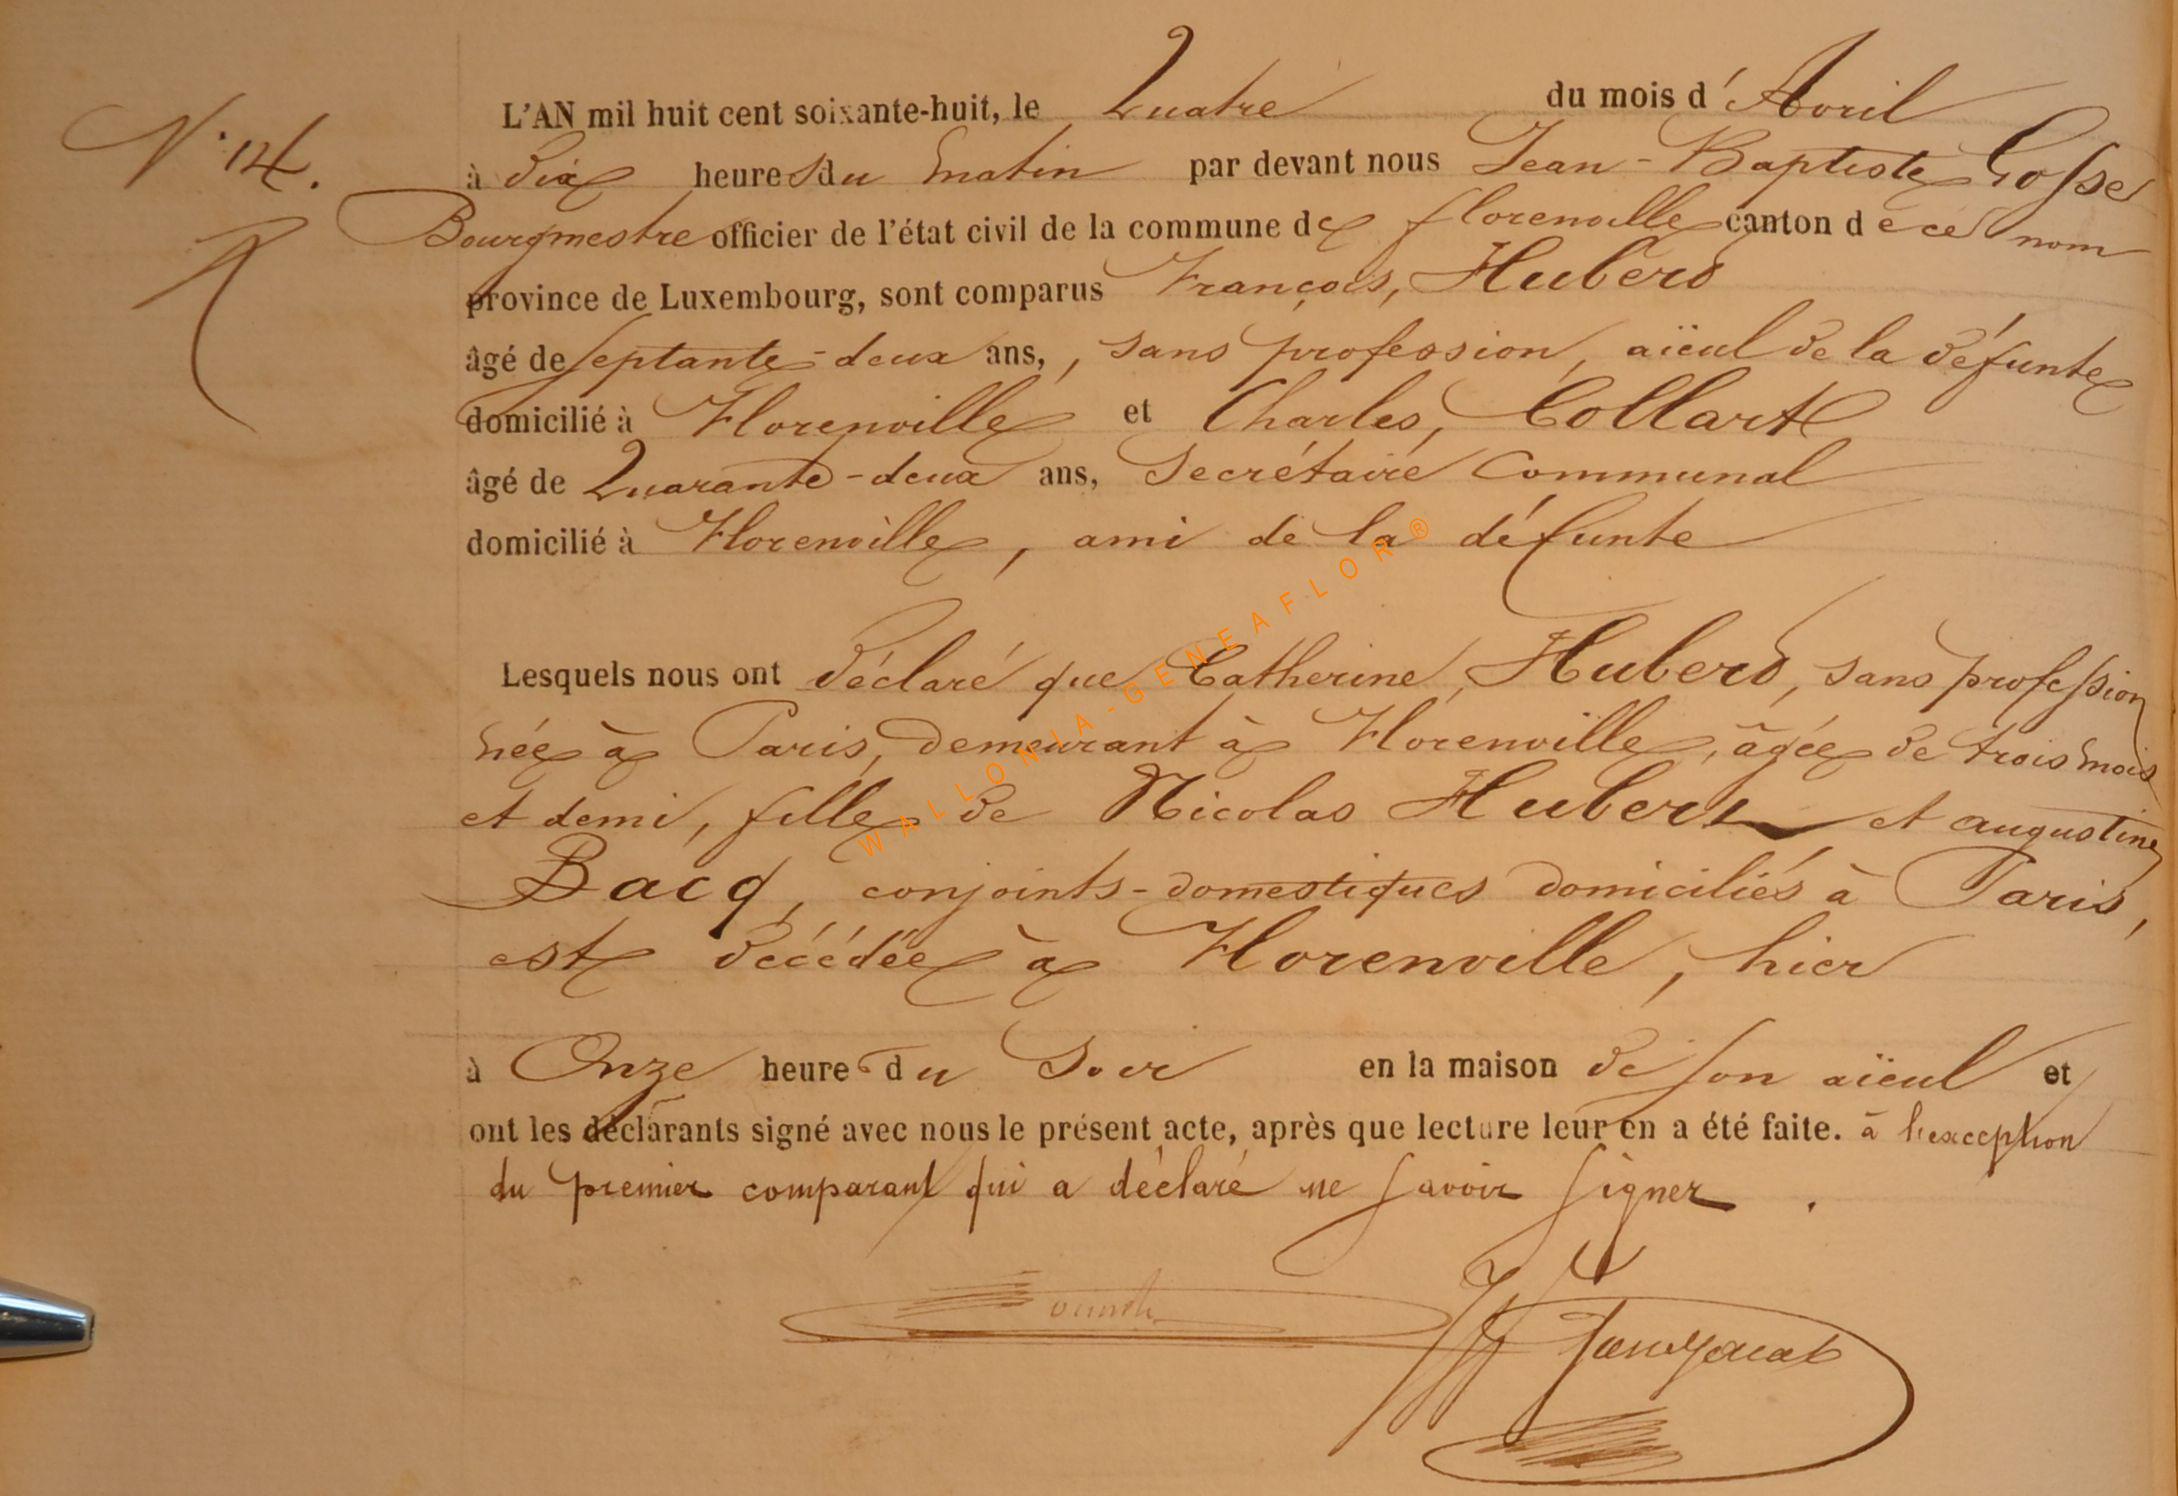 N° 14.
L'AN mil huit cent soixante-huit, le Quatre du mois d'Avril
à dix heures du matin par devant nous Jean-Baptiste Gosse
Bourgmestre officier de l'état civil de la commune de florenville canton de ce nom
province de Luxembourg, sont comparus François, Hubert
âgé de septante-deux ans, , sans profession, aïeul de la défunte
domicilié à Florenville et Charles, Collart
âgé de Quarante-deux ans, Secrétaire Communal
domicilié à Florenville, ami de la défunte
Lesquels nous ont déclaré que Catherine, Hubert, sans profession
née à Paris, demeurant à Florenville, âgée de trois mois
et demi, fille de Nicolas Hubert et augustine
Bacq, conjoints-domestiques domiciliés à Paris,
est décédée à Florenville, hier
à Onze heure du Soir en la maison de son aïeul et
ont les déclarants signé avec nous le présent acte, après que lecture leur en a été faite. à l'exception
du premier comparant qui a déclaré ne savoir signer .
WALLONIA-GENEAFLOR®